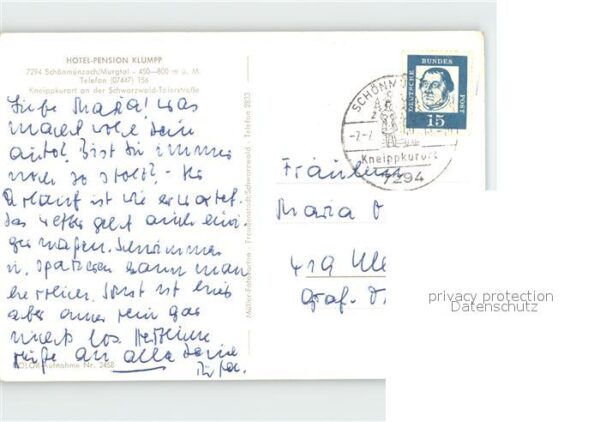 HOTEL-PENSION KLUMPP
7294 Schönmünzach/Murgtal - 450—800 m ü. M.
Telefon (07447) 156
Kneippkurort an der Schwarzwald-Tälerstraße
Liebe Maria! Was
macht
auto! Bist du immer
noch so stolz? - Der
Urlaub ist wie erwartet.
Das Wetter geht auch eini-
germaßen. Schwimmen
u. spazieren kann man
herrlich. Sonst ist hier
aber gar
nichts los. Herzliche
Grüße an alle Deine
COLOR-Aufnahme Nr. 2458
Müller-Fotokarten - Freudenstadt/Schwarzwald - Telefon 2873
DEUTSCHE BUNDES POST
15
SCHÖNMÜ
Kneippkurort
7294
Fräulein
Maria
419
Graf-
privacy protection
Datenschutz